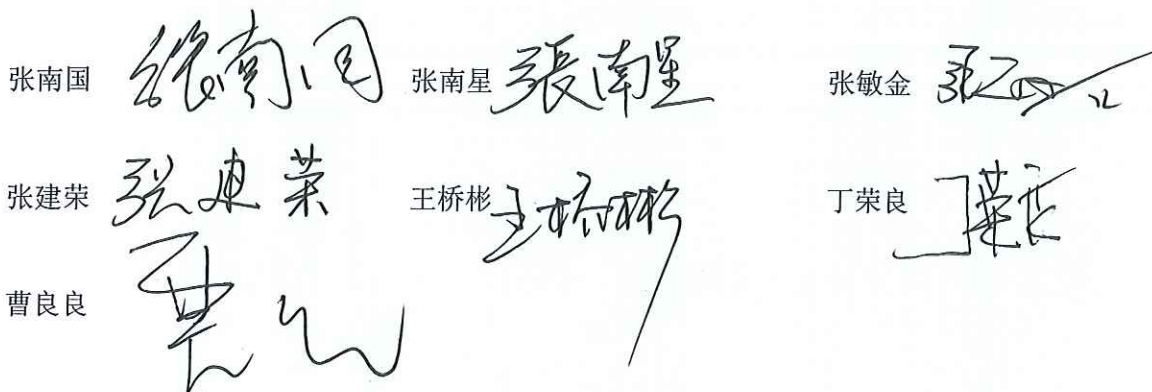 张南国 张南国 张南星 張南星 张敏金
张建荣 张建荣 王桥彬 王桥彬 丁荣良 丁荣良
曹良良